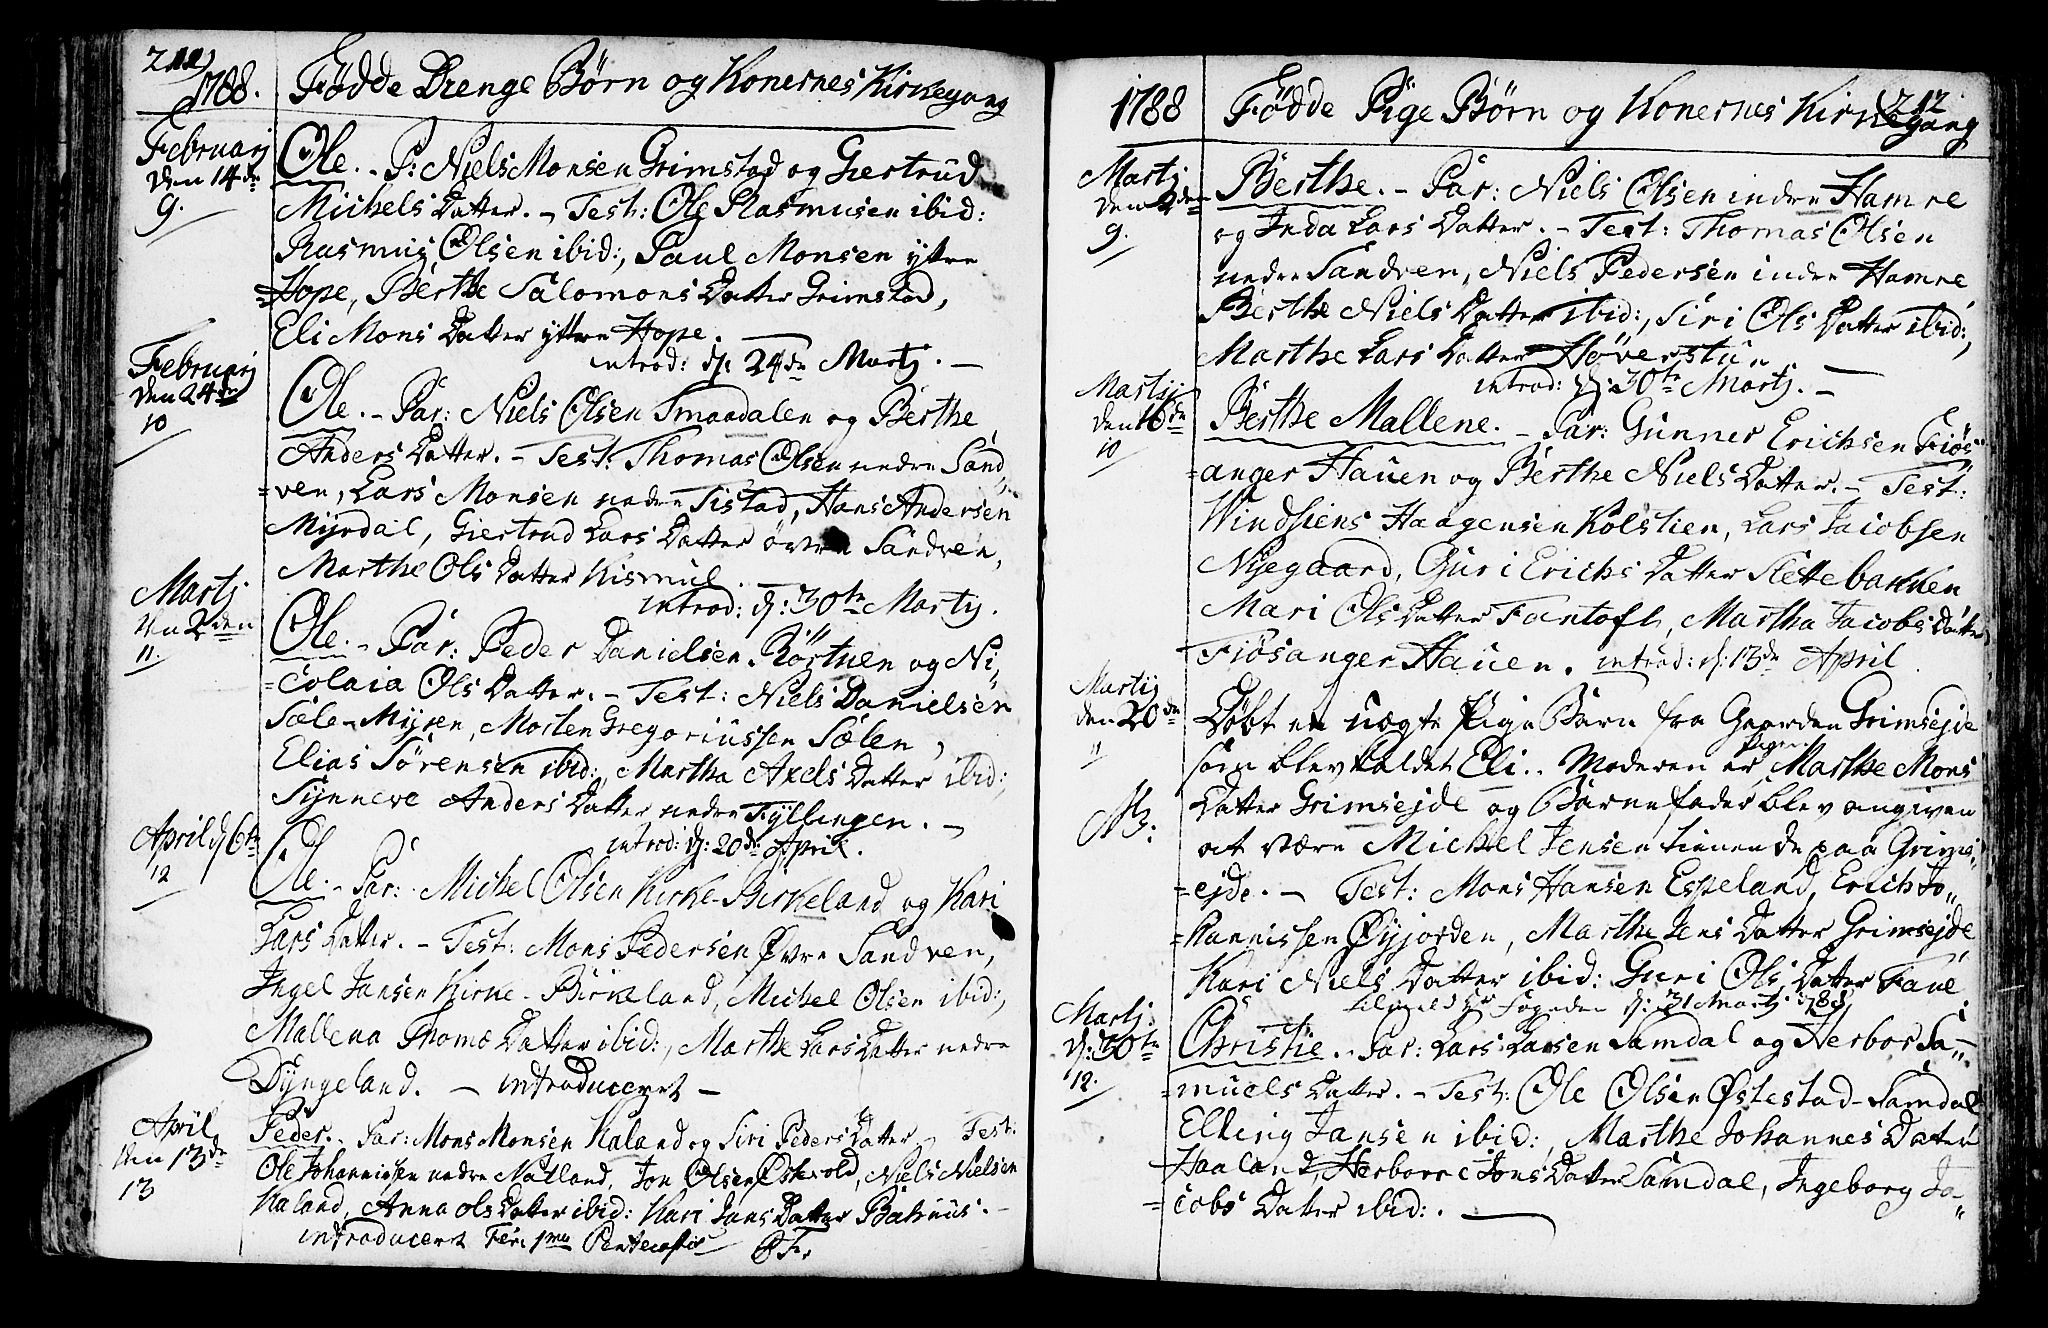 211
1788. Fødde Drenge Børn og Konernes Kirkegang
Februarj den 14de 9.
Ole. - P: Niels Monsen Grimstad og Giertrud
Michels Datter. - Test: Ole Rasmusen ibid:
Rasmus Olsen ibid:, Paul Monsen yttre
=Hope, Berthe Salomons Datter Grimstad,
Eli Mons Datter yttre Hope.
introd: d: 24de Martj. -
Februarj den 24de 10
Ole. - Par: Niels Olsen Smaadalen og Berthe
Anders Datter. - Test: Thomas Olsen nedre Sand-
=ven, Lars Monsen nedre Tistad, Hans Andersen
Myrdal, Giertrud Lars Datter øvre Sandven,
Marthe Ols Datter Kismul.
introd: d: 30te Martij.
Martj den 2den 11.
Ole. - Par: Peder Danielsen Børtnen og Ni-
=colaia Ols Datter. - Test: Niels Danielsen
Sæle-Myren, Morten Gregoriussen Sælen,
Elias Sørensen ibid:, Martha Axels Datter ibid:,
Synneve Anders Datter nedre Tyllingen. -
introd: d: 20de April.
April d 6te 12
Ole. - Par: Michel Olsen Kirke-Birkeland og Kari
Lars Datter. - Test: Mons Pedersen Øvre Sandven,
Ingel Jansen Kirke-Birkeland, Michel Olsen ibid:,
Mallena Thomæ Datter ibid:, Marthe Lars Datter nedre
Dyngeland. - introduceret -
April den 13de 13
Peder. - Par: Mons Monsen Haland og Siri Peders Datter - Test:
Ole Johannissen nedre Natland, Jon Olsen Østevold, Niels Nielsen
Haland, Anna Ols Datter ibid: Kari Jans Datter Bahuus. -
introduceret Fer: 1ma Pentecostis
212
1788 Fødde Pige Børn og Konernes Kirkegang
Martj. den 2den 9.
Berthe. - Par: Niels Olsen indre Hamre
og Inda Lars Datter. - Test: Thomas Olsen
nedre Sandven, Niels Pedersen indre Hamre
Berthe Niels Datter ibid:, Siri Ols Datter ibid:,
Marthe Lars Datter Høverstun
introd: d: 30te Martj. -
Martij den 16de 10
Berthe Mallene. - Par: Gunner Erichsen Fiøs-
=anger Hauen og Berthe Niels Datter. - Test:
Windsens Haagensen Kolstien, Lars Jacobsen
Nygaard, Guri Erichs Datter Slettebakken
Mari Ols Datter Fantoft, Martha Jacobs Datter
Fiøsanger Hauen. introd: d: 13de April.
Martij den 20de 11
Døbt en uægte Pige Barn fra Gaarden Grimsejde
som blev kaldet Eli. . Moderen er Pigen Marthe Mons
NB:
Datter Grimsejde og Barnefader blev angiven
at være Michel Jensen tienende paa Grims-
=ejde. - Test: Mons Hansen Espeland, Erich Jo-
=hannissen Øyjorden, Marthe Jens Datter Grimsejde
Kari Niels Datter ibid: Guri Ols Datter Fane
Fogeden d: 31 Martj 1788
Martj: d: 30te 12.
Christie. - Par: Lars Larsen Samdal og Herbor Sa-
=muels Datter. - Test: Ole Olsen Østestad-Samdal
Elling Jansen ibid:, Marthe Johannes Datter
Haaland, Herborre Jons Datter Samdal, Ingeborg Ja-
=cobs Datter ibid: .